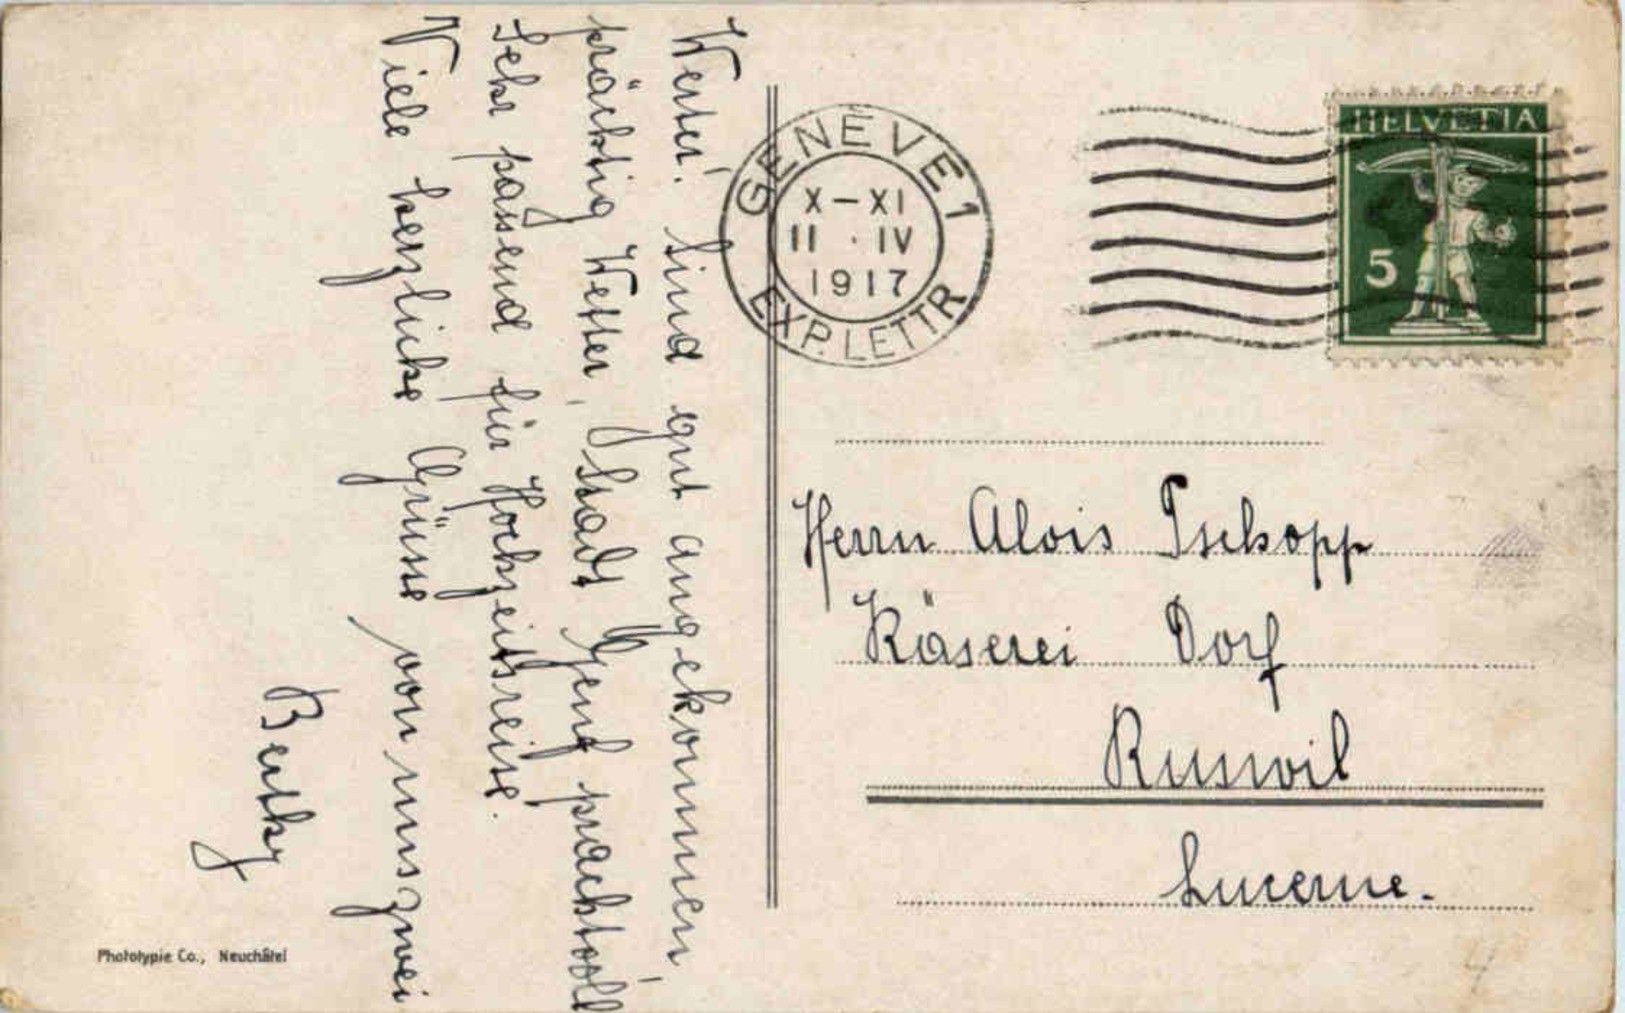 Werter! Sind gut angekommen,
prächtig Wetter, Stadt Genf prachtvoll
Sehr passend für Hochzeitsreise.
Viele herzliche Grüsse von uns zwei
Berthy
Phototypie Co., Neuchâtel
GENÈVE 1
X–XI
11 · IV
1917
EXP. LETTR
HELVETIA
5
Herrn Alois Tschopp
Käserei Dorf
Ruswil
Lucerne.